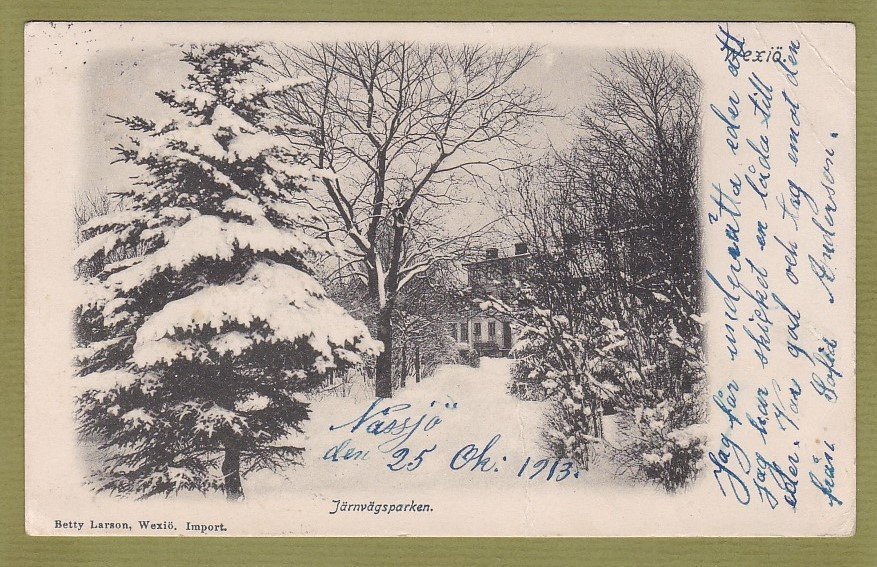 Wexiö.
Jag får underrätta eder att
jag har skicket en låda till
eder. Var god och tag emot den
från Sofid Anderson.
Nässjö
den 25 Ok: 1913.
Järnvägsparken.
Betty Larson, Wexiö. Import.